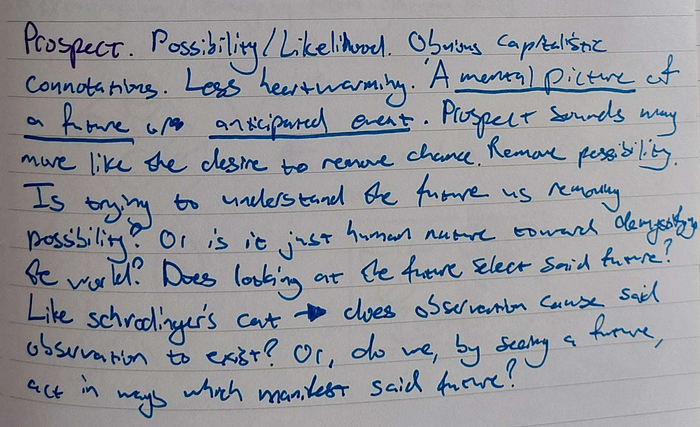 Prospect. Possibility/Likelihood. Obvious capitalistic
connotations. Less heartwarming. 'A mental picture of
a future or anticipated event'. Prospect sounds way
more like the desire to remove chance. Remove possibility.
Is trying to understand the future us removing
possibility? Or is it just human nature towards demystifying
the world? Does looking at the future select said future?
Like schrodinger's cat → does observation cause said
observation to exist? Or, do we, by seeing a future,
act in ways which manifest said future?